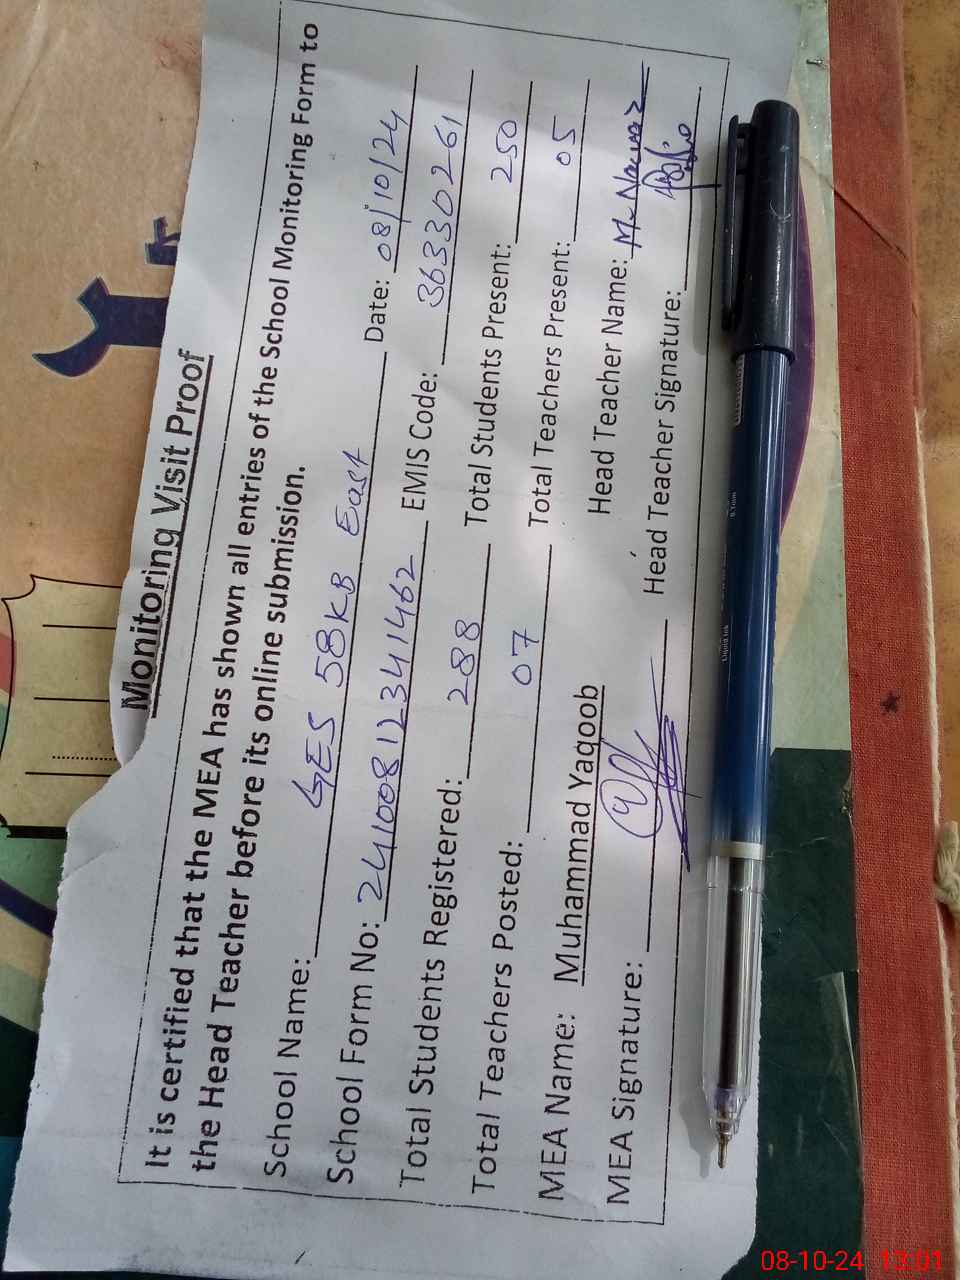 Monitoring Visit Proof
It is certified that the MEA has shown all entries of the School Monitoring Form to
the Head Teacher before its online submission.
School Name: GES 58KB East Date: 08/10/24
School Form No: 24100812341462 EMIS Code: 36330261
Total Students Registered: 288 Total Students Present: 250
Total Teachers Posted: 07 Total Teachers Present: 05
MEA Name: Muhammad Yaqoob Head Teacher Name: M. Nawaz
MEA Signature: Head Teacher Signature:
Liquid Ink
0.7mm
08-10-24 13:01